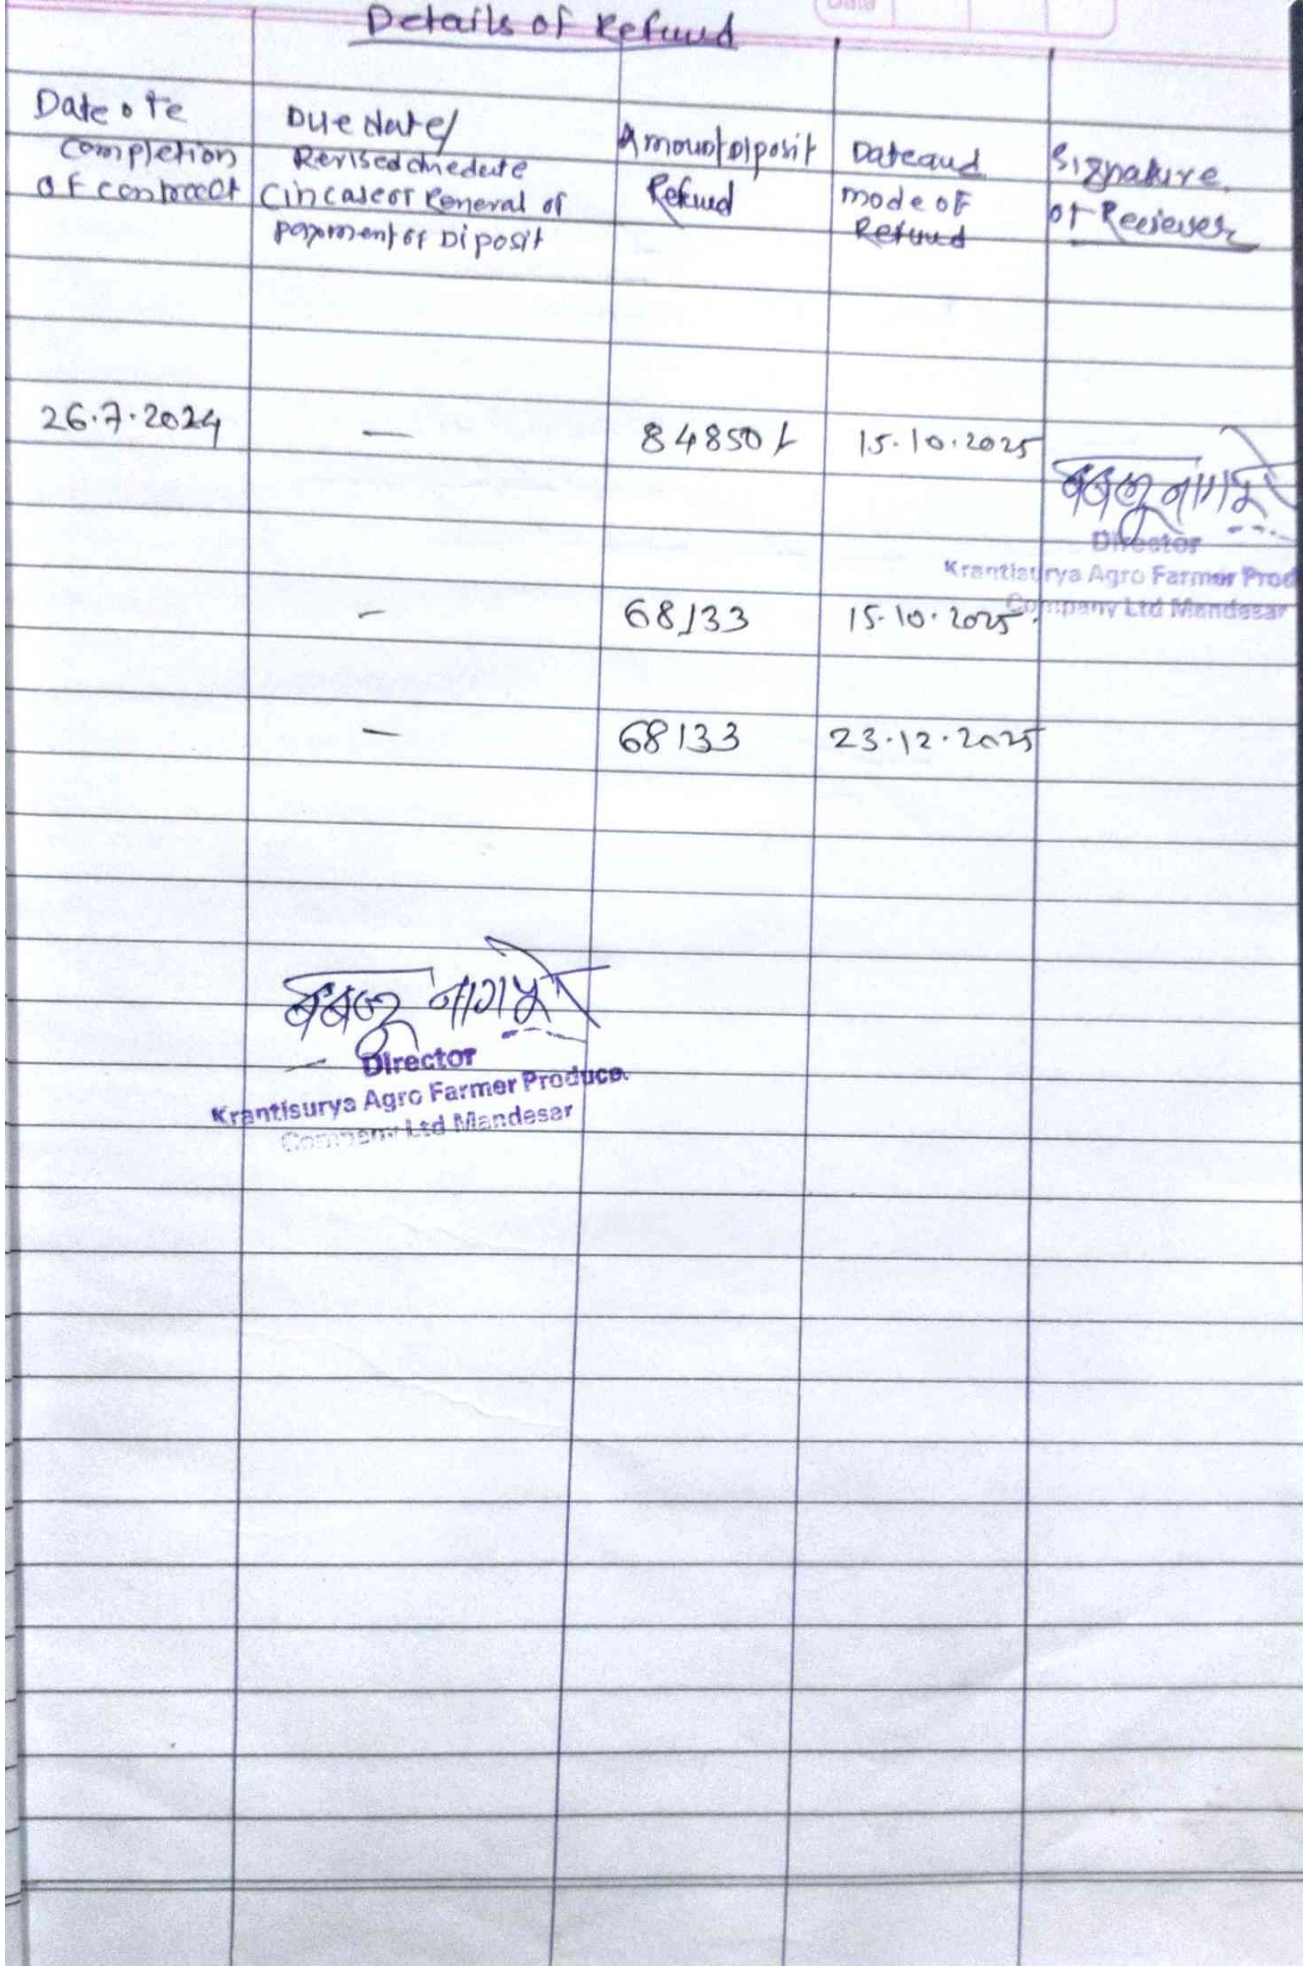 Date
Details of Refund
Date o te
completion
of contract
Due date/
Revised chedule
Cin case of Reneral of
payment of Diposit
Amount Diposit
Refund
Date and
mode of
Refund
Signature
of Reciever
26.7.2024 — 84850/- 15.10.2025
Director
Krantisurya Agro Farmer Prod
Company Ltd Mandesar
- 68133 15.10.2025.
- 68133 23.12.2025
Director
Krantisurya Agro Farmer Produce.
Company Ltd Mandesar